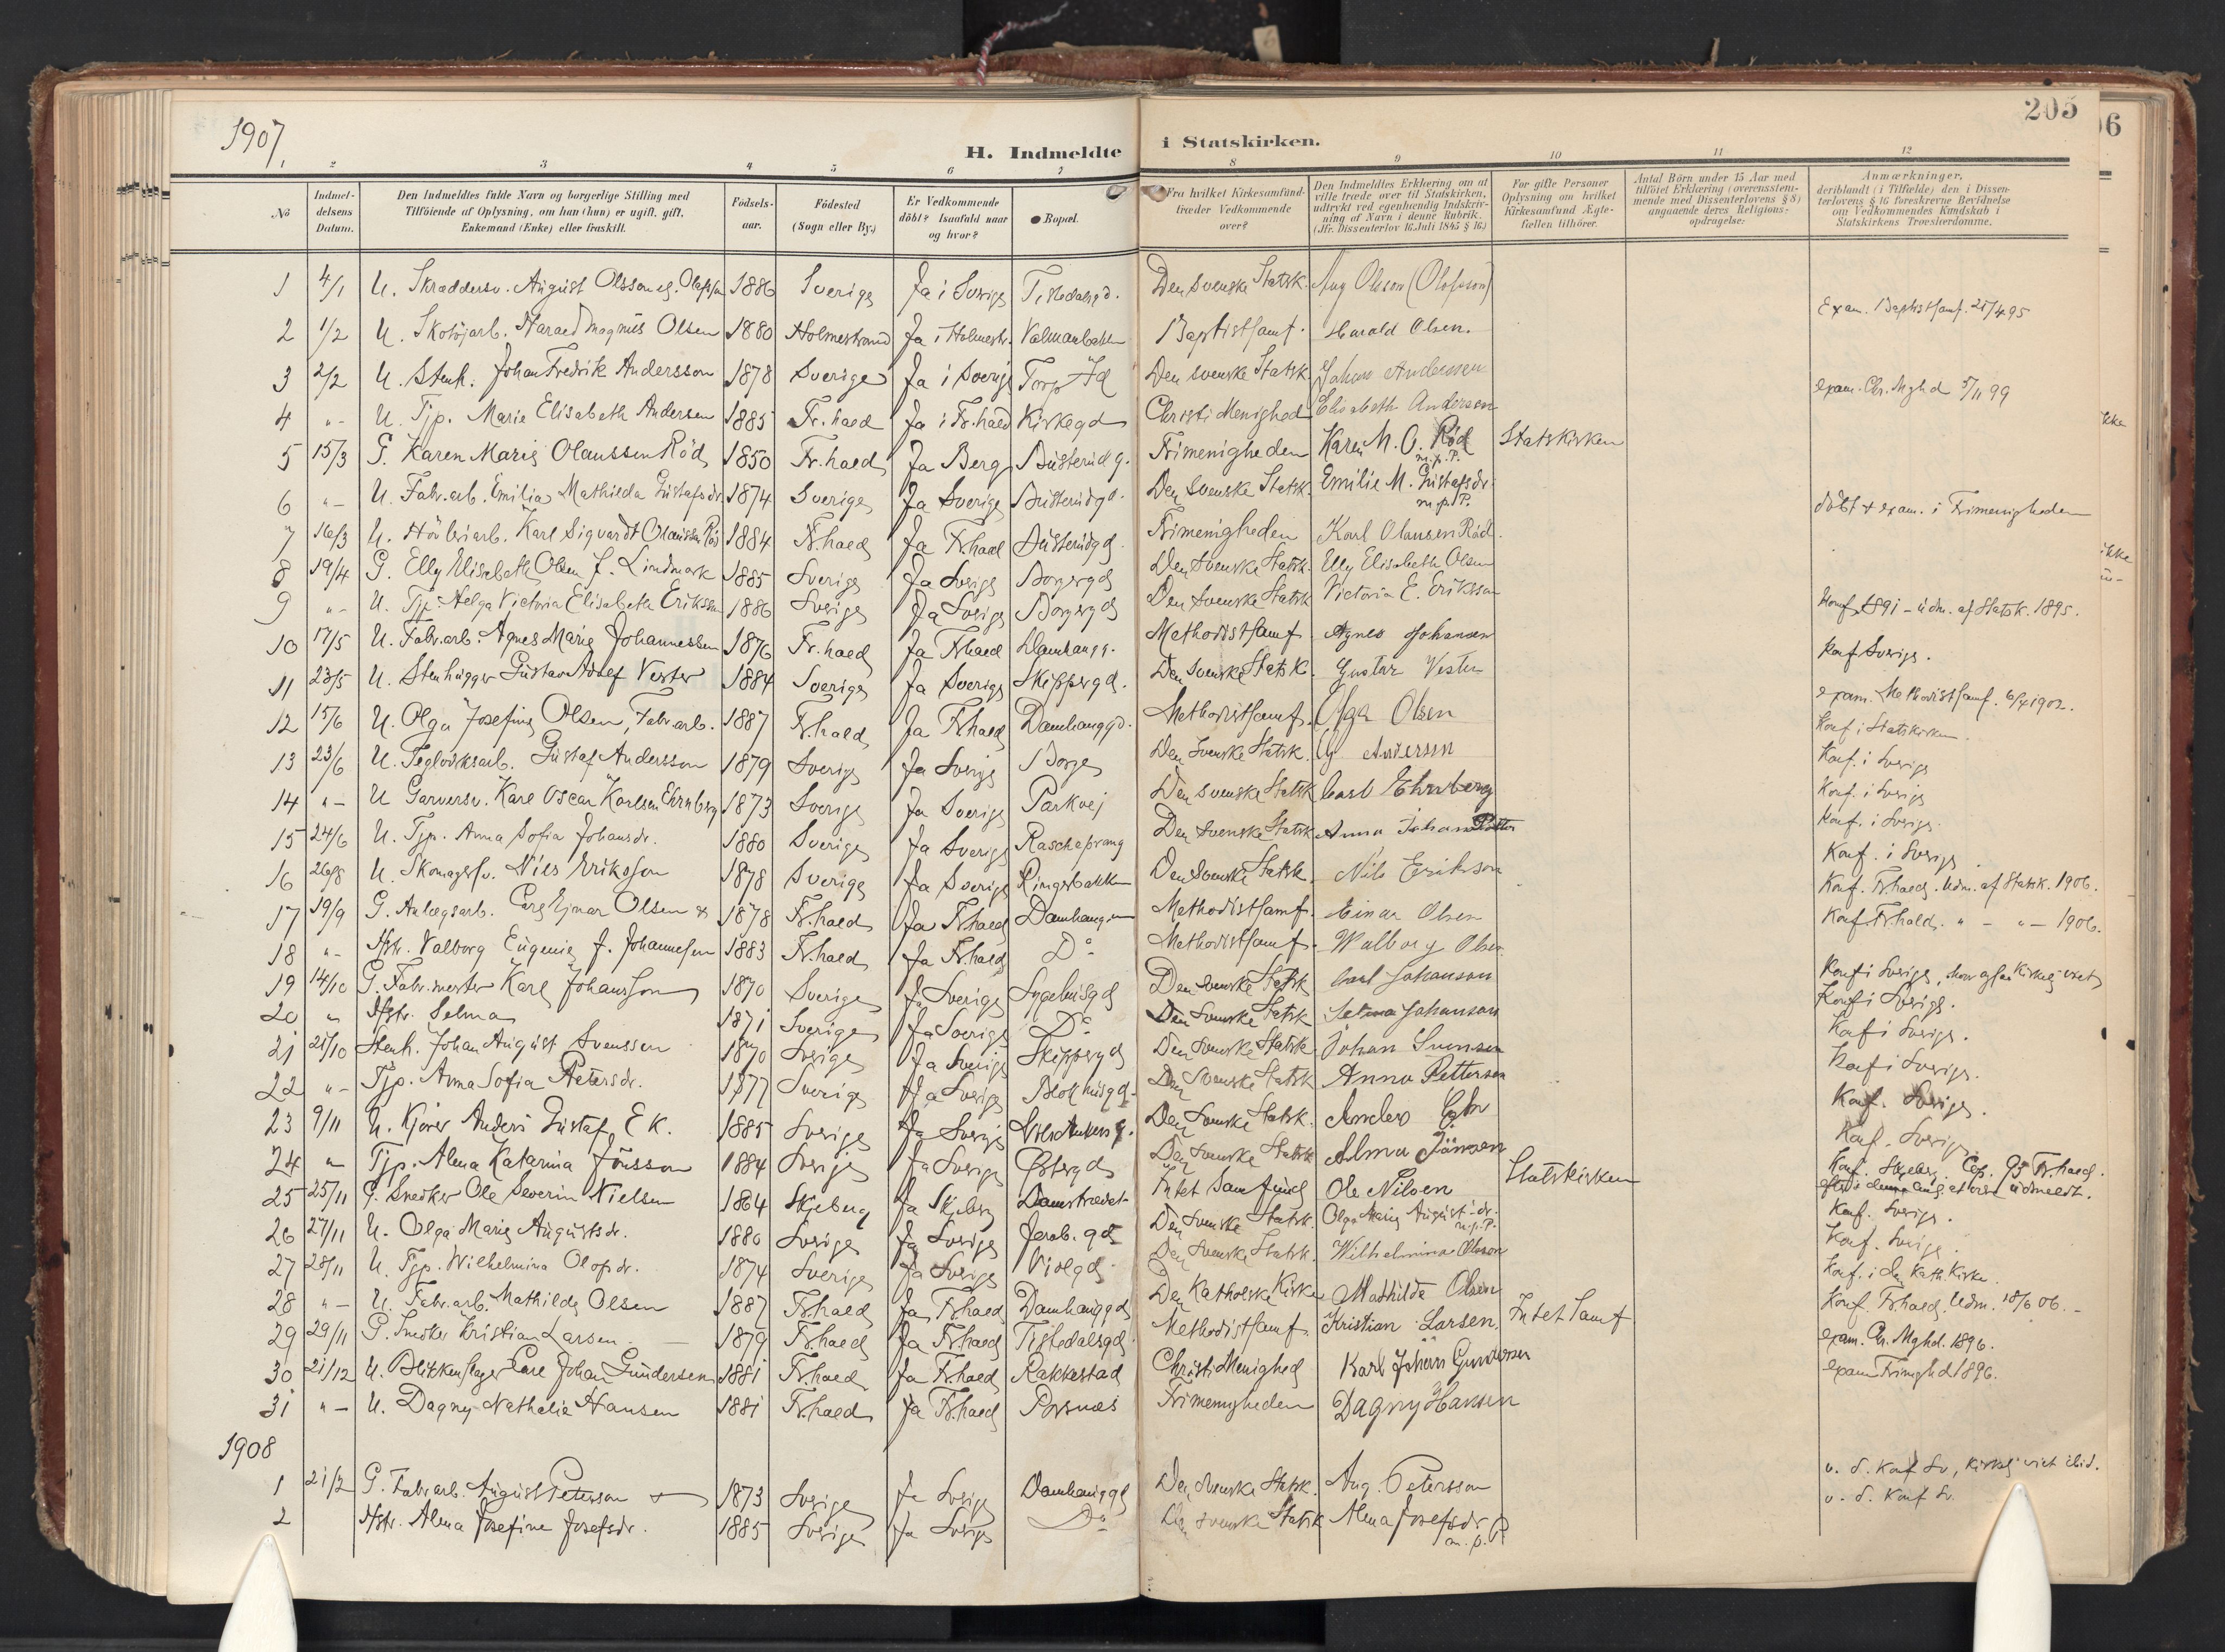 1907
H. Indmeldte i Statskirken.
205
06
1 2 3 4 5 6 7 8 9 10 11 12
No
Indmeldelsens Datum.
Den Indmeldtes fulde Navn og borgerlige Stilling med Tilföiende af Oplysning, om han (hun) er ugift, gift, Enkemand (Enke) eller fraskilt.
Födselsaar.
Födested (Sogn eller By.)
Er Vedkommende döbt? Isaafald naar og hvor?
Bopæl.
Fra hvilket Kirkesamfund træder Vedkommende over?
Den Indmeldtes Erklæring om at ville træde over til Statskirken, udtrykt ved egenhændig Indskrivning af Navn i denne Rubrik. (Jfr. Dissenterlov 16 Juli 1845 § 16.)
For gifte Personer Oplysning om hvilket Kirkesamfund Ægtefællen tilhörer.
Antal Börn under 15 Aar med tilföiet Erklæring (overensstemmende med Dissenterlovens § 8) angaaende deres Religionsopdragelse:
Anmærkninger, deriblandt (i Tilfælde) den i Dissenterlovens § 16 foreskrevne Bevidnelse om Vedkommendes Kundskab i Statskirkens Troeslærdomme.
1 4/1 U. Skræddersv. August Olsson eg. Olafsson 1886 Sverige Ja i Sverige Tistedalsgd. Den svenske Statsk. Aug Olsson (Olofsson)
2 1/2 U. Skotöjarb. Harald Magnus Olsen 1880 Holmestrand Ja i Holmestr. Baptistsamf. Harald Olsen. Exam. Baptistsamf. 21/4 95
3 2/2 U. Stenh. Johan Fredrik Andersson 1878 Sverige Ja i Sverige Torp Id Den svenske Statsk. Johan Andersson
4 "- U. Tjp. Marie Elisabeth Andersen 1885 Fr.hald Ja i Fr.hald Kirkegd Christi Menighed Elisabeth Andersen exam. Chr. Mghd 5/11 99
5 15/3 G. Karen Marie Olaussen Röd 1850 Fr.hald Ja Berg Busterudg. Frimenigheden Karen M. O. Röd m.p.P. Statskirken
6 "- U. Fabr.arb. Emilia Mathilda Gustafsdr. 1874 Sverige Ja Sverige Busterudgd. Den Svenske Statsk. Emilie M. Gustafsdr. m.p.P.
7 16/3 U. Hövleriarb. Karl Sigvardt Olaussen Röd 1884 Fr.hald Ja Fr.hald Busterudgd. Frimenigheden Karl Olausen Röd. döbt & exam. i Frimenigheden
8 19/4 G. Elly Elisabeth Olsen f. Lindmark 1885 Sverige Ja Sverige Borgergd Den Svenske Statsk. Elly Elisabeth Olsen
9 "- U. Tjp. Helga Victoria Elisabeth Eriksson 1886 Sverige Ja Sverige Borgergd Den Svenske Statsk Victoria E. Eriksson
10 17/5 U. Fabr.arb. Agnes Marie Johannessen 1876 Fr.hald Ja Fr.hald Damhaugg. Methodistsamf. Agnes Johansen Konf. 1891 - udm. af Statsk. 1895.
11 23/5 U. Stenhugger Gustav Adolf Vester 1884 Sverige Ja Sverige Skippergd. Den Svenske Statsk. Gustav Vester Konf. Sverige.
12 15/6 U. Olga Josefine Olsen, Fabr.arb. 1887 Fr.hald Ja Fr.hald Damhauggd. Methodistsamf. Olga Olsen exam. Methodistsamf. 6/4 1902.
Konf. i Statskirken.
13 23/6 U. Teglværksarb. Gustaf Andersson 1879 Sverige Ja Sverige Borge Den Svenske Statsk. G Andersson Konf. i Sverige
14 "- U Garversv. Karl Oscar Karlsen Ehrnberg 1873 Sverige Ja Sverige Parkvej Den svenske Statsk Carl Ehrnberg Konf. i Sverige
15 24/6 U. Tjp. Anna Sofia Johansdr. 1880 Sverige Ja Sverige Raschesprang Den Svenske Statsk Anna Johansdotter Konf. i Sverige.
16 26/8 U. Skomagersv. Nils Eriksson 1878 Sverige Ja Sverige Ringerbakken Den Svenske Statsk. Nils Erikson Konf. i Sverige.
17 19/9 G. Anlægsarb. Carl Ejnar Olsen & 1878 Fr.hald Ja Fr.hald Damhaugen Methodistsamf. Einar Olsen Konf. Fr.hald. Udm. af Statsk. 1906.
18 "- Hstr. Valborg Eugenie f. Johannesen 1883 Fr.hald Ja Fr.hald Do Methodistsamf. Walborg Olsen. Konf. Fr.hald. " - " - 1906.
19 14/10 G. Fabr.mester Karl Johansson 1870 Sverige Ja Sverige Sygehusgd Den svenske Statsk Carl Johanson Konf. i Sverige, kirkelig viet
20 " Hstr. Selma 1871 Sverige Ja Sverige Do Den Svenske Statsk Selma Johanson Konf. i Sverige.
21 21/10 Stenh. Johan August Svenssen 1870 Sverige Ja Sverige Skippergd Den Svenske Statsk Johan Svensen Konf i Sverige.
22 "- Tjp. Anna Sofia Petersdr. 1877 Sverige Ja Sverige Blokhusgd. Den Svenske Statsk Anna Pettersen Konf i Sverige.
23 9/11 U. Kjörer Anders Gustaf Ek. 1885 Sverige Ja Sverige Den Svenske Statsk. Anders Ek Konf. Sverige.
24 " Tjp. Alma Katarina Jönsson 1884 Sverige Ja Sverige Østergd Den Svenske Statsk Alma Jönsson Konf. Sverige.
25 25/11 G. Snedker Ole Severin Nielsen 1864 Skjeberg Ja Skjeberg Damstrædet Intet Samfund Ole Nilsen Statskirken Konf. Skjeberg. Cop. 95 Fr.hald.
udmeldt.
26 27/11 U. Olga Marie Augustsdr. 1880 Sverige Ja Sverige Jerab. gd Den Svenske Statsk. Olga Marie August.dr. m.p.P. Konf. Sverige.
27 28/11 U. Tjp. Wilhelmina Olofsdr. 1874 Sverige Ja Sverige Violgd. Den Svenske Statsk. Wilhelmina Olsson Konf. Sverige.
28 "- U. Fabr.arb. Mathilde Olsen 1887 Fr.hald Ja Fr.hald Damhauggd Den Katholske Kirke Mathilda Olsen Konf. i den Kath. Kirke.
29 29/11 G. Snedker Kristian Larsen 1879 Fr.hald Ja Fr.hald Tistedalsgd. Methodistsamf. Kristian Larsen. Intet Samf Konf. Fr.hald. Udm. 18/6 06.
30 21/12 U. Blikkenslager Carl Johan Gundersen 1881 Fr.hald Ja Fr.hald Rakkestad Christi Menighed Karl Johan Gundersen exam. Ch. Mghd. 1896.
31 "- U. Dagny Nathalie Hansen 1881 Fr.hald Ja Fr.hald Porsnæs Frimenigheden Dagny Hansen exam Frimghd 1896.
1908
1 21/2 G. Fabr.arb. August Peterson & 1873 Sverige Ja Sverige Damhauggd Den svenske Statsk. Aug. Petersson v. d. Konf Sv, kirkelig viet ibid.
2 Hstr. Alma Josefine Josefsdr. 1885 Sverige Ja Sverige Do Den svenske Statsk Alma Josefsdr m.p.P. v. d. Konf Sv.